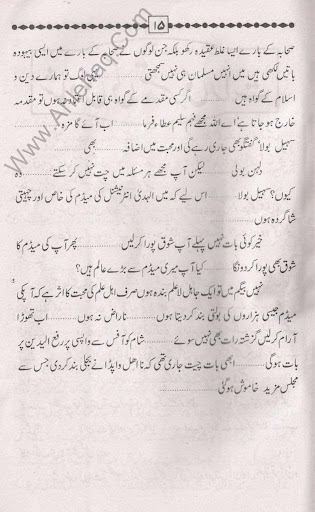 ۱۵
صحابہ کے بارے ایسا غلط عقیدہ نہ رکھو بلکہ جن لوگوں نے صحابہ کے بارے میں ایسی بیہودہ
باتیں لکھی ہیں میں انہیں مسلمان ہی نہیں سمجھتی ......... یہی لوگ تو ہمارے دین و
اسلام کے گواہ ہیں ......... اگر کسی مقدمے کے گواہ ہی قابل اعتماد نہ ہوں تو مقدمہ
خارج ہو جاتا ہے اے اللہ مجھے فہم سلیم عطاء فرما ......... اب آئے گا مزہ
سہیل بولا گفتگو بھی جاری رہے گی اور محبت میں اضافہ ......... بھی
دلہن بولی ......... لیکن آپ مجھے ہر مسئلہ میں چت نہیں کر سکتے ......... وہ
کیوں؟ سہیل بولا ......... اس لیے کہ میں الہدیٰ انٹرنیشنل کی میڈم کی خاص اور چہیتی
شاگردہ ہوں
خیر کوئی بات نہیں پہلے آپ شوق پورا کر لیں ......... پھر آپ کی میڈم کا
شوق بھی پورا کر دونگا ......... کیا آپ میری میڈم سے بڑے عالم ہیں؟
نہیں بیگم میں تو ایک جاہل لا علم بندہ ہوں صرف اہل علم کی محبت کا اثر ہے کہ آپکی
میڈم جیسی ہزاروں کی بوتی بند کر دیتا ہوں ......... ناراض نہ ہوں ......... اب تھوڑا
آرام کر لیں گزشتہ رات بھی نہیں سوئے ......... شام کو آفس سے واپسی پر رفع الیدین پر
بات ہوگی ......... ابھی بات چیت جاری تھی کہ نا اھل واپڈا نے بجلی بند کر دی جس سے
مجلس مزید خاموش ہوگئی
www.AhleHaq.com